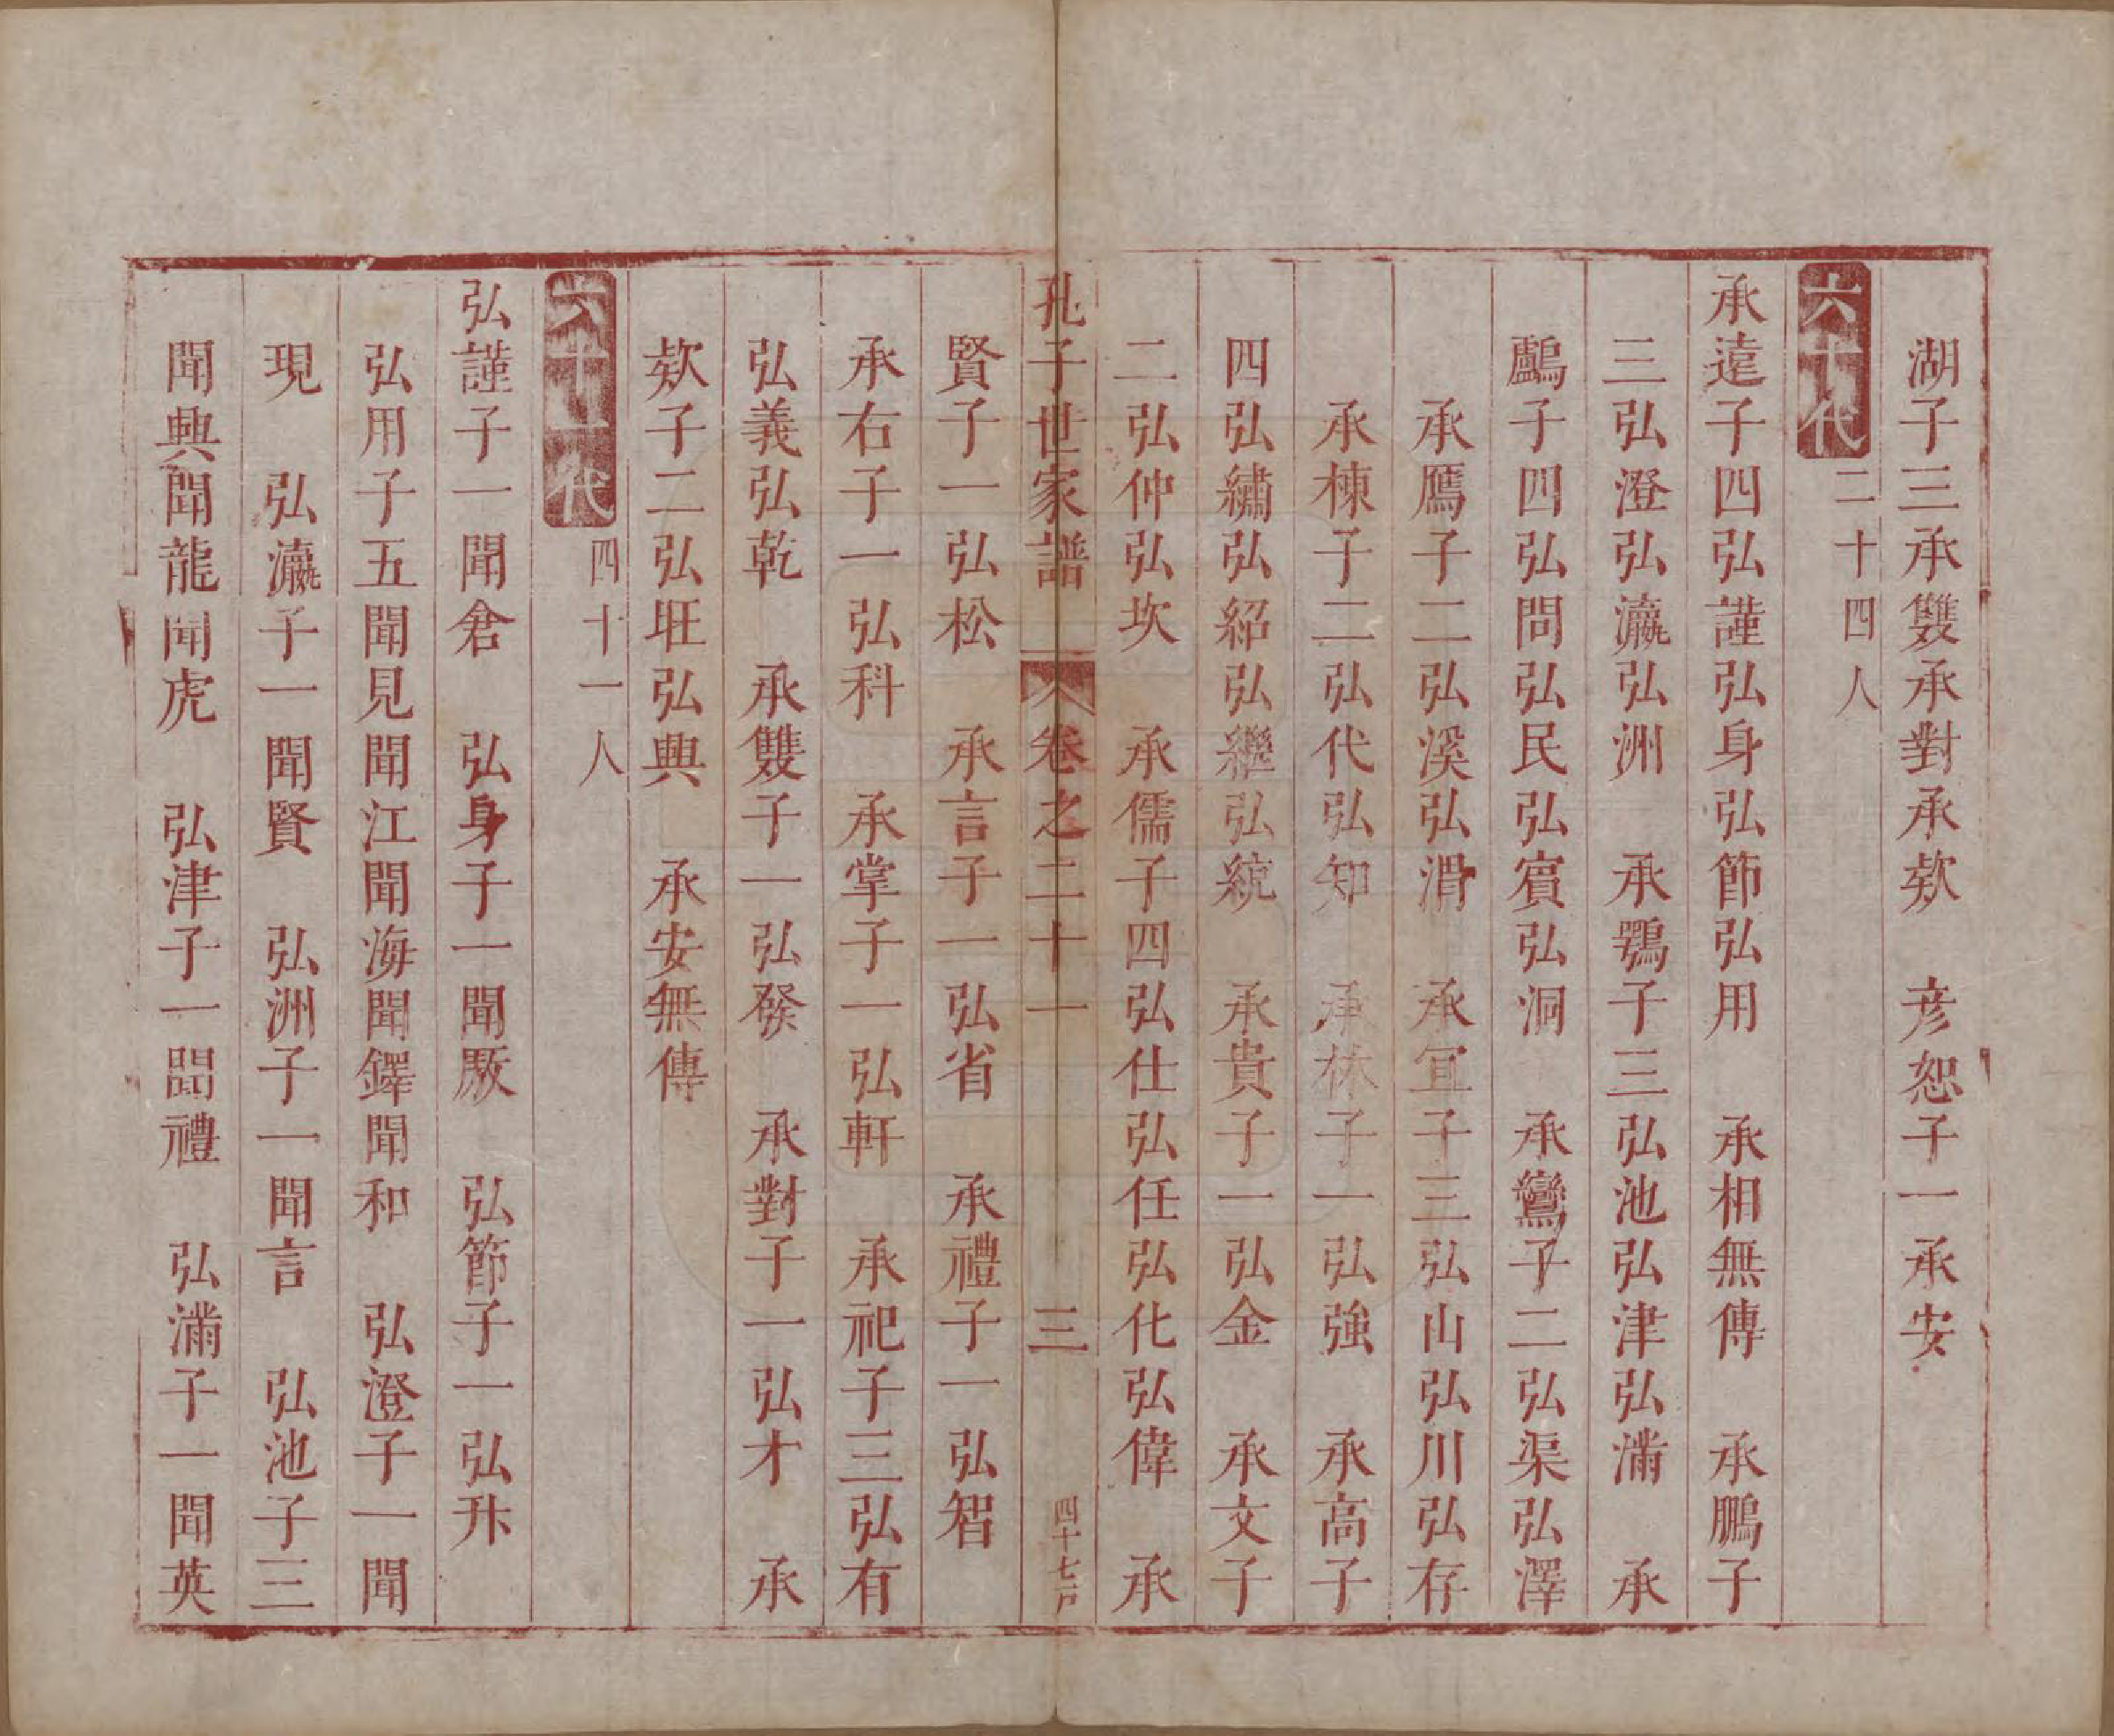 湖子三承雙承對承欬　彦恕子一承安
六十代　二十四人
承遠子四弘謹弘身弘節弘用　承相無傳　承鵬子
三弘澄弘瀛弘洲　承鶚子三弘池弘津弘滿　承
鸕子四弘問弘民弘賓弘洞　承鸞子二弘渠弘澤
承鴈子二弘溪弘渭　承宜子三弘山弘川弘存
承棟子二弘代弘知　承林子一弘強　承高子
四弘繡弘紹弘繼弘統　承貴子一弘金　承文子
二弘仲弘坎　承儒子四弘仕弘任弘化弘偉　承
孔子世家譜　卷之二十一　三　四十七戸
賢子一弘松　承言子一弘省　承禮子一弘智
承右子一弘科　承掌子一弘軒　承祀子三弘有
弘義弘乾　承雙子一弘發　承對子一弘才　承
欬子二弘旺弘興　承安無傳
六十一代　四十一人
弘謹子一聞倉　弘身子一聞厫　弘節子一弘升
弘用子五聞見聞江聞海聞鐸聞和　弘澄子一聞
現　弘瀛子一聞賢　弘洲子一聞言　弘池子三
聞興聞龍聞虎　弘津子一聞禮　弘滿子一聞英